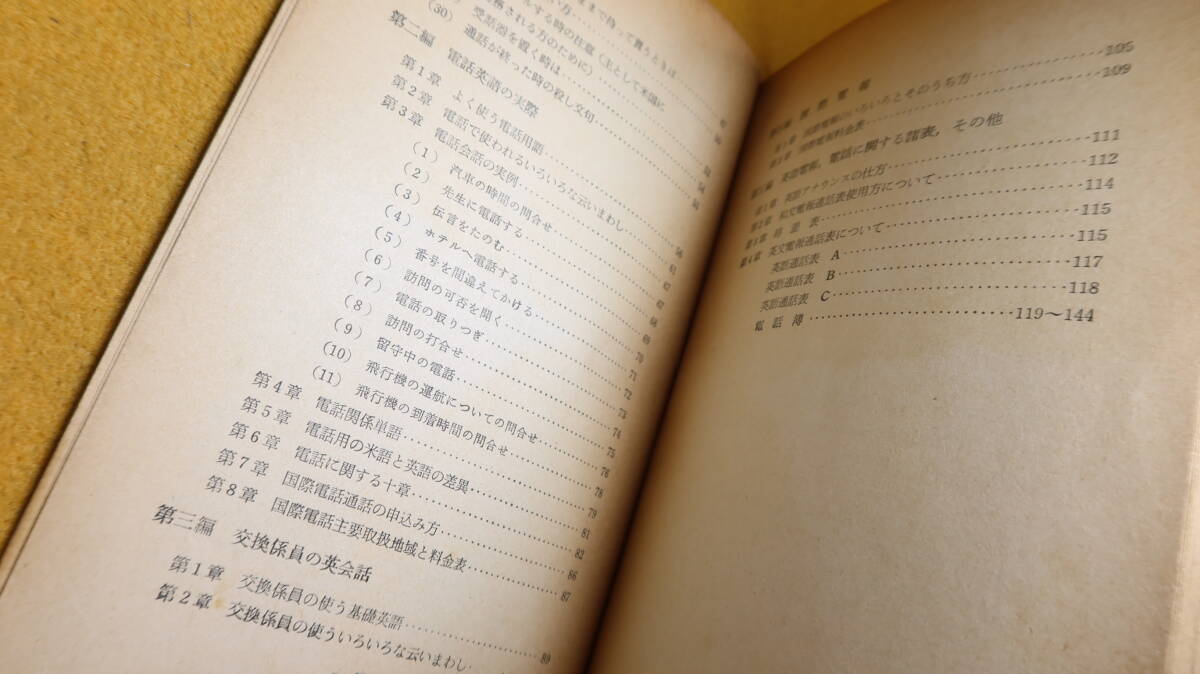 まで待って貰うときは
する時の注意（主として米国に
務される方のために）
受話器を置く時は
(30) 通話が終った時の殺し文句
第二編 電話英語の実際
第1章 よく使う電話用語
第2章 電話で使われるいろいろな云いまわし
第3章 電話会話の実例 56
(1) 汽車の時間の問合せ 61
(2) 先生に電話する 67
(3) 伝言をたのむ 67
(4) ホテルへ電話する 68
(5) 番号を間違えてかける 69
(6) 訪問の可否を聞く 70
(7) 電話の取りつぎ 71
(8) 訪問の打合せ 72
(9) 留守中の電話 73
(10) 飛行機の運航についての問合せ 74
(11) 飛行機の到着時間の問合せ 75
第4章 電話関係単語 76
第5章 電話用の米語と英語の差異 78
第6章 電話に関する十章 79
第7章 国際電話通話の申込み方 81
第8章 国際電話主要取扱地域と料金表 82
第三編 交換係員の英会話 86
第1章 交換係員の使う基礎英語 87
第2章 交換係員の使ういろいろな云いまわし 89
国際電報
第1章 国際電報のいろいろとそのうち方 105
第2章 国際電報料金表 109
英語電報，電話に関する諸表，その他
第1章 英語アナウンスの仕方 111
第2章 和文電報通話表使用方について 112
第3章 時差表 114
第4章 英文電報通話表について 115
英語通話表 A 115
英語通話表 B 117
英語通話表 C 118
電話簿 119〜144